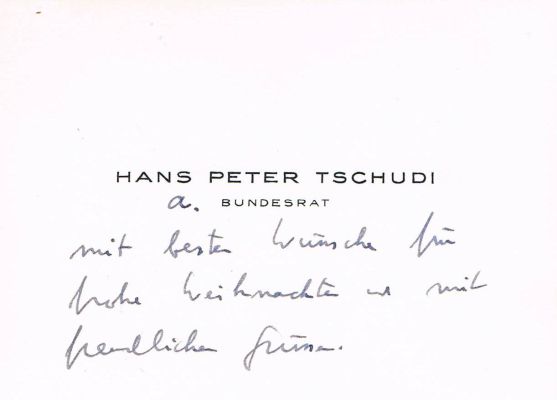 HANS PETER TSCHUDI
a. BUNDESRAT
mit besten Wünschen für
frohe Weihnachten u mit
freundlichen Grüssen.